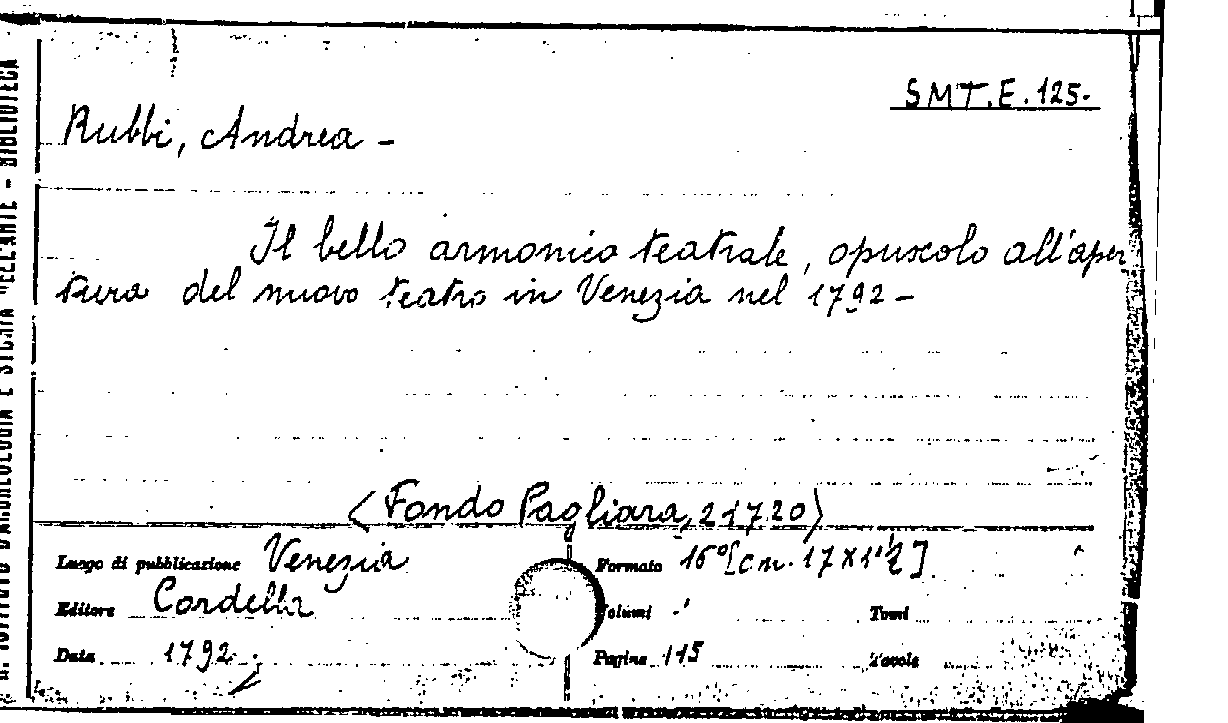 SMT.E.125-
Rubbi, Andrea -
Il bello armonico teatrale, opuscolo all'aper
tura del nuovo teatro in Venezia nel 1792 -
(Fondo Pagliara, 21720)
Luogo di pubblicazione Venezia
Formato 16° [cm. 17 X
Editore Cordella
Volumi
Tomi
Data 1792.
Pagine 115
Tavole
ISTITUTO D'ARCHEOLOGIA E STORIA DELL'ARTE - BIBLIOTECA